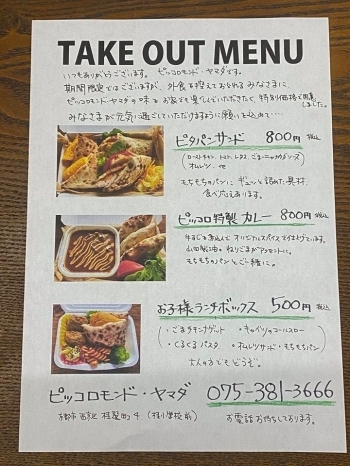 TAKE OUT MENU
いつもありがとうございます。ピッコロモンド・ヤマダです。
期間限定ではございますが、外食を控えておられるみなさまに、
ピッコロモンド・ヤマダの味をお家でも楽しんでいただきたく、特別価格で用意しました。
みなさまが元気に過ごしていただけますように願いを込めて…
ピタパンサンド 800円 税込
(ローストチキン、トマト、レタス、
オムレツ、他
もちもちのパンにギュッと詰めた具材、
食べ応えあります。
ピッコロ特製カレー 800円 税込
オリジナルスパイス
山田製油のねりごまがアクセントに。
もちもちのパンとご一緒に。
お子様ランチボックス 500円 税込
・ごまチキンナゲット ・キャベツのコールスロー
・くるくるパスタ ・オムレツサンド・もちもちパン
大人の方でもどうぞ。
ピッコロモンド・ヤマダ 075-381-3666
京都市西京区桂
お電話お待ちしております。